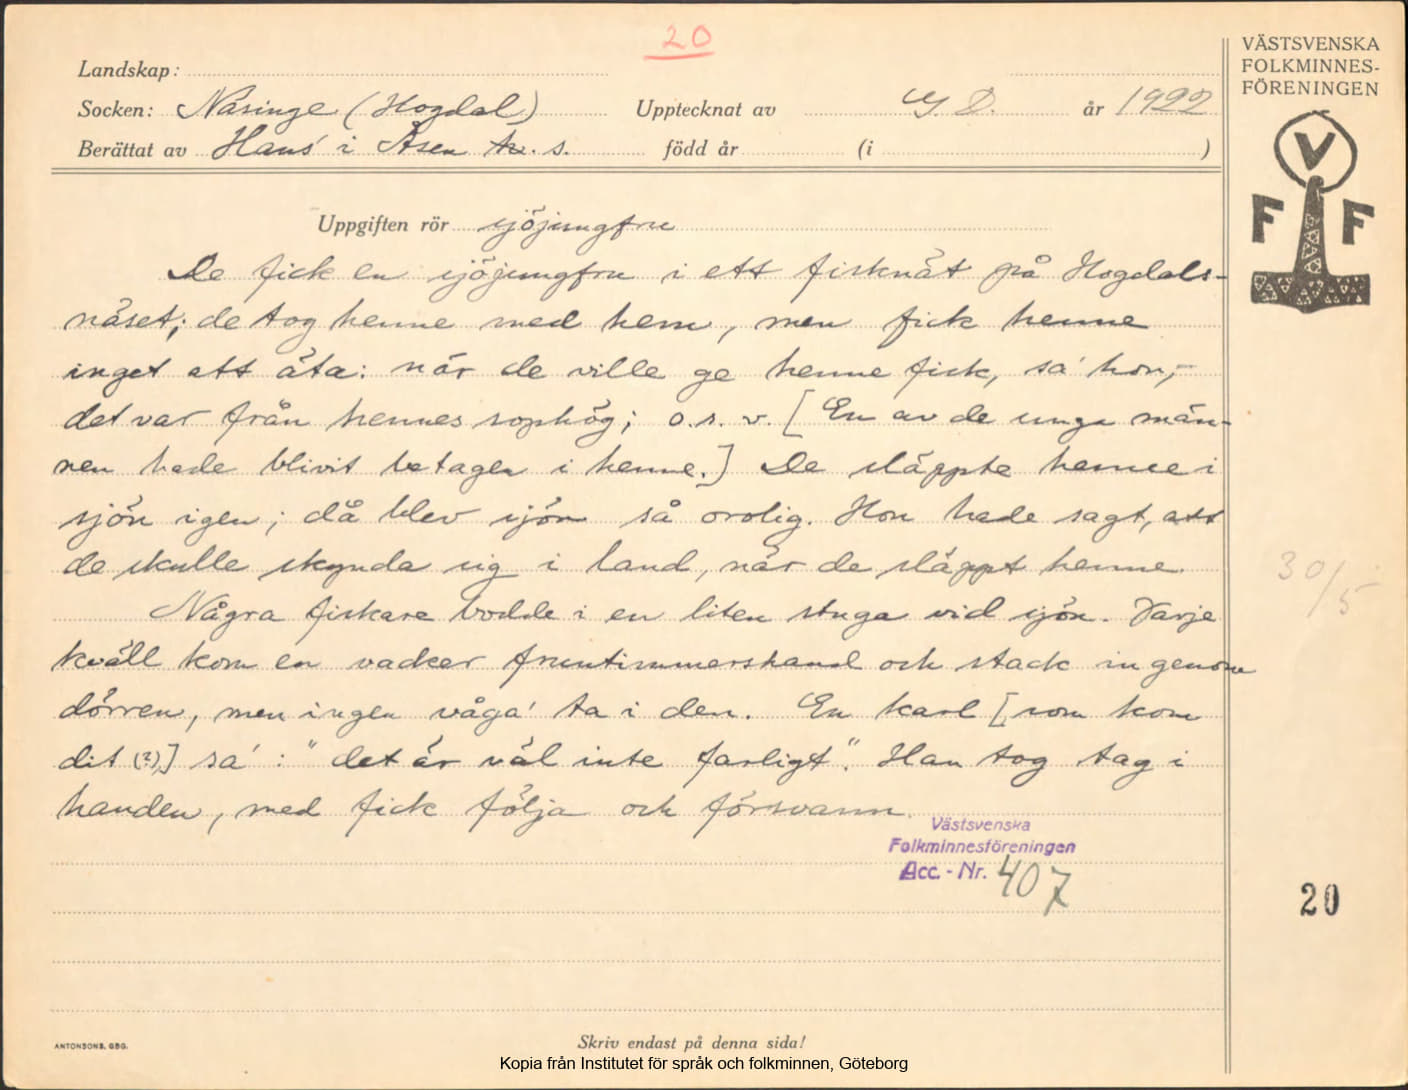 20
Landskap:
VÄSTSVENSKA
FOLKMINNES-
FÖRENINGEN
Socken: Näsinge (Hogdal) Upptecknat av G. D. år 1922
Berättat av Hans' i Åsen h. s. född år (i )
V
F F
Uppgiften rör sjöjungfru
De fick en sjöjungfru i ett fisknät på Hogdals-
näset; de tog henne med hem, men fick henne
inget att äta: när de ville ge henne fisk, sa' hon,-
det var från hennes sophög; o.s.v. [En av de unga män-
nen hade blivit betagen i henne.] De släppte henne i
sjön igen; då blev sjön så orolig. Hon hade sagt, att
de skulle skynda sig i land, när de släppt henne.
30/5
Några fiskare bodde i en liten stuga vid sjön. Varje
kväll kom en vacker fruntimmershand och stack in genom
dörren, men ingen våga' ta i den. En karl [som kom
dit (?)] sa': "det är väl inte farligt". Han tog tag i
handen, med fick följa och försvann.
Västsvenska
Folkminnesföreningen
Acc.-Nr. 407
20
ANTONSONS, GBG.
Skriv endast på denna sida!
Kopia från Institutet för språk och folkminnen, Göteborg